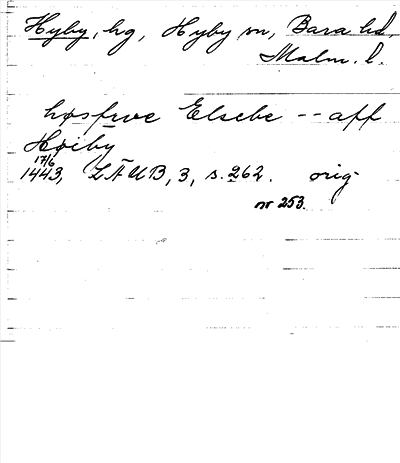 Hyby, hg, Hyby sn, Bara hd,
Malm. l.
høsfrwe Elsebe -- aff
Høiby
17/6
1443, LÄUB, 3, s. 262. orig
nr 253.